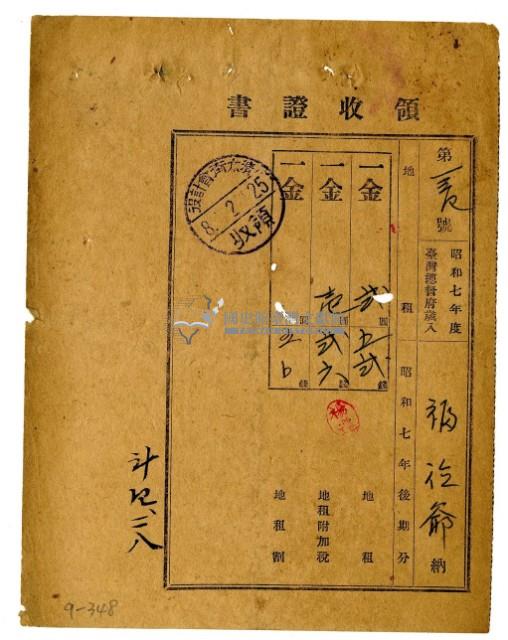 領收證書
第 號
昭和七年度
臺灣總督府歲入
福德爺 納
地租
昭和七年後期分
一金 貳圓五貳錢 地租
一金 壱圓貳六錢 地租附加稅
一金 五 錢 地租割
8. 2. 25
領收
計四、二八
國史館臺灣文獻館
9-348